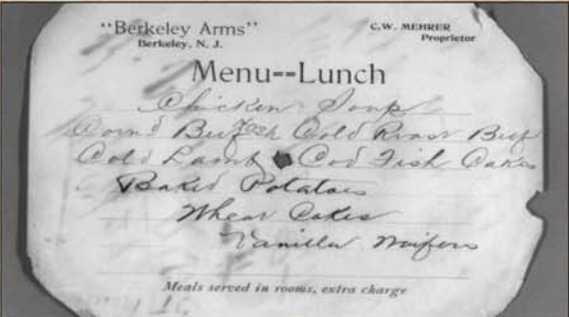 "Berkeley Arms"
Berkeley, N. J.
C. W. MEHRER
Proprietor
Menu--Lunch
Chicken Soup
Corn'd Beef Cold Roast Beef
Cold Lamb Cod Fish Cakes
Baked Potatoes
Wheat Cakes
Vanilla Waifers
Meals served in rooms, extra charge